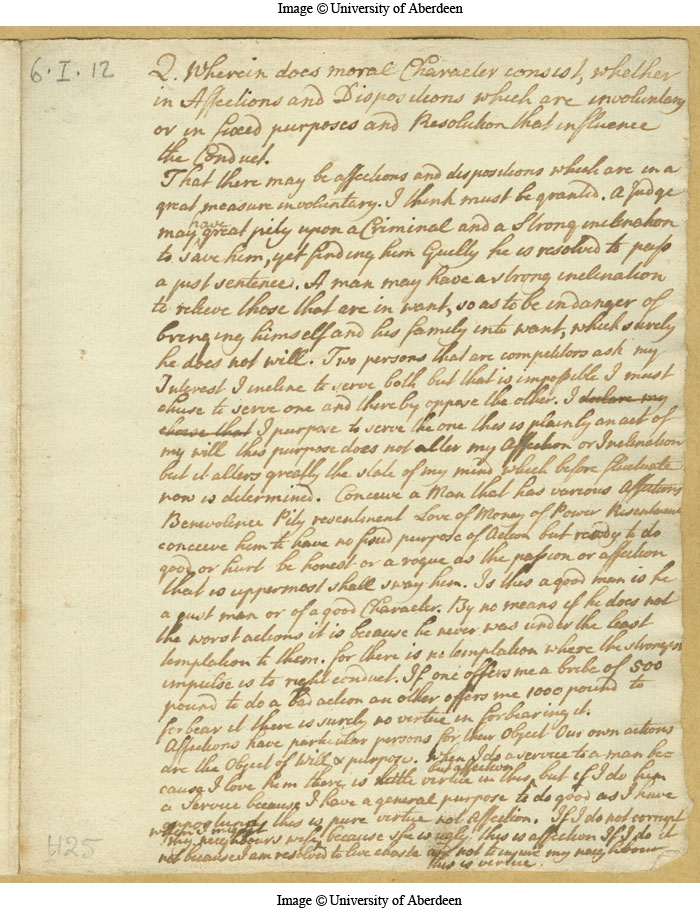 Image © University of Aberdeen
6·I·12
Q. Wherein does moral Character consist, whether
in Affections and Dispositions which are involuntary
or in fixed purposes and Resolution that influence
the Conduct.
That there may be affections and dispositions which are in a
great measure involuntary. I think must be granted. A Judge
may have great pity upon a Criminal and a Strong inclination
to save him, yet finding him Guilty he is resolved to pass
a just sentence. A man may have a strong inclination
to relieve those that are in want, so as to be in danger of
bringing himself and his family into want, which surely
he does not will. Two persons that are competitors ask my
Interest I incline to serve both but that is impossible I must
chuse to serve one and thereby oppose the other. I declare my
choise that I purpose to serve the one this is plainly an act of
my will this purpose does not alter my Affection or Inclination
but it alters greatly the state of my mind which before fluctuate
now is determined. Conceive a Man that has various Affections
Benevolence Pity resentment Love of Money of Power Resentment
conceive him to have no fixed purpose of Action but ready to do
good or hurt be honest or a rogue as the passion or affection
that is uppermost shall sway him. Is this a good man is he
a just man or of a good Character. By no means if he does not
the worst actions it is because he never was under the least
temptation to them. for there is no temptation where the strongest
impulse is to right conduct. If one offers me a bribe of 500
pound to do a bad action an other offers me 1000 pound to
forbear it there is surely no vertue in forbearing it.
Affections have particular persons for their Object Our own actions
are the Object of Will & purpose. When I do a service to a man be-
cause I love him there is little vertue in this, but affection but if I do him
a Service because I have a general purpose to do good as I have
opportunity this is pure virtue not Affection. If I do not corrupt
when I might
my neighbours wife, because she is ugly this is affection If I do it
not because I am resolved to live chaste and not to injure my neighbour
this is vertue.
1425
Image © University of Aberdeen